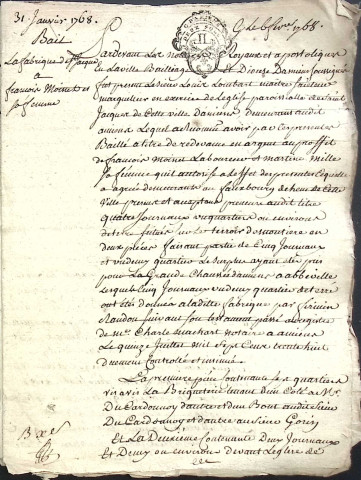 31 Janvier 1768.
Bail
La fabrique de St Jacques
a
francois Mornet et
sa femme
Pardevant Les not Royaux et apostoliques
en la ville Bailliage et Diocese Damiens soussignés
fut present Le sieur Louis
marguillier en exercice de Leglise paroissialle de Saint
Jacques de cette ville Damiens y demeurant audit
amiens Lequel a Reconnu avoir par ces presentes
Baillé a titre de redevance en argent au proffit
de francois Mornet Laboureur et martine Mille
sa femme quil autorise a Leffet des presentes Laquelle
a agréé demeurants au fauxbourg de de cette
Ville presents et acceptans preneurs audit titre
quatre Journaux un quartier ou environs
de terre scitués sur Le terroir en
deux pieces faisant partie de Cinq Journaux
et un demy quartier Le surplus ayant été pris
pour La Grande Chaussée damiens a abbeville
Lesquels Cinq Journaux un demy quartier de terre
ont été donnés a laditte fabrique par
suivant son testament passé
de Me Charle Machart notaire a amiens
Le quinze Juillet mil sept Cent trente huit
duement Controllé et insinué.
La premiere piece Contenante sept quartiers
vis a vis La Briqueterie tenant dun Coté a Mr
Du Cardonnoy dautre et dun Bout audit sieur
Du Cardonnoy et dautre au sieur Goris
Et La Deuxieme Contenante Deux Journaux
et Demy ou environ devant Leglise de